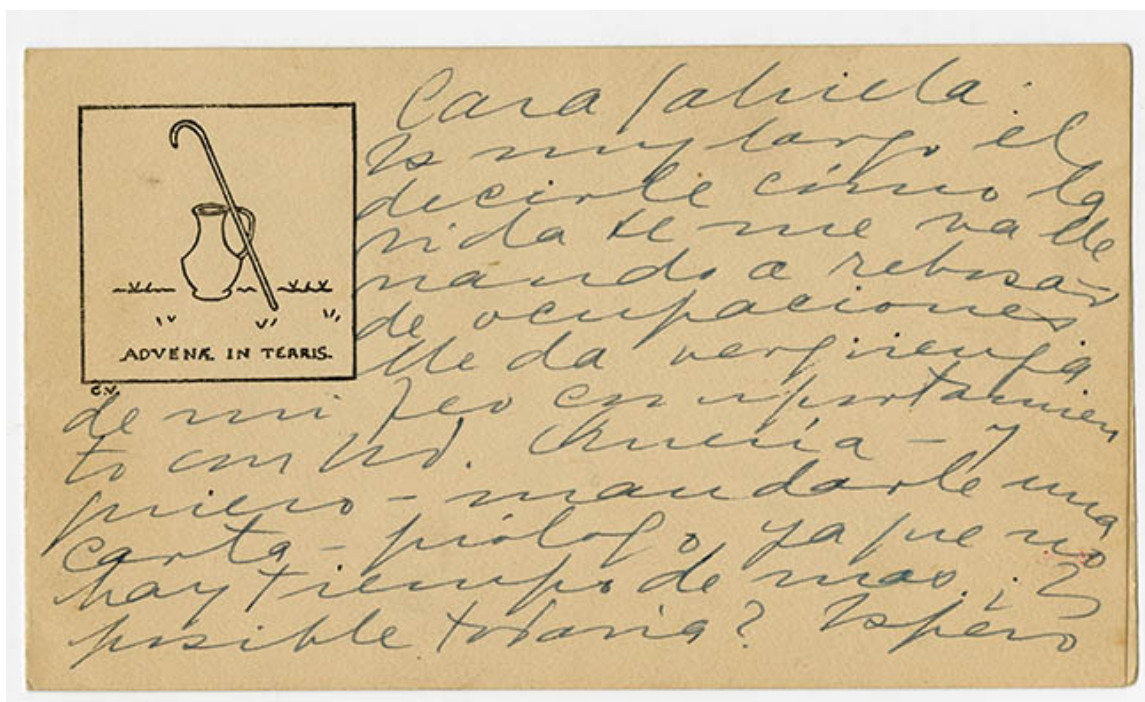 Cara Gabriela:
Es muy largo el
decirle cómo la
vida se me va lle
nando a rebosar
de ocupaciones
Me da vergüenza
de mi feo comportamien
to con Ud. Quería – y
quiero – mandarle una
carta – prólogo, ya que no
hay tiempo de mas. ¿Es
posible todavía? Espero
ADVENÆ IN TERRIS.
C.V.